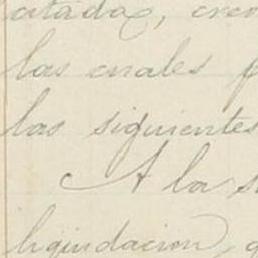 citada, cre
las cuales
las siguientes
A la s
liquidacion, q